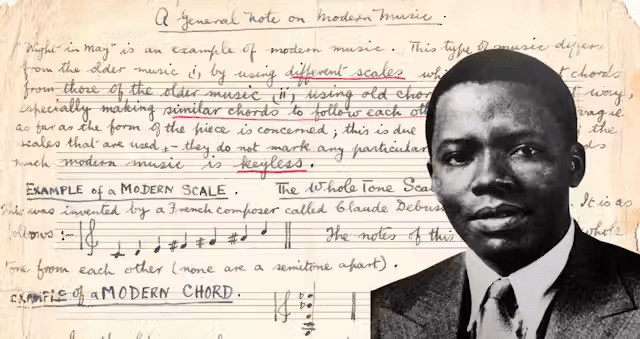 A General Note on Modern Music.
"Night in May" is an example of modern music. This type of music differs
from the older music i, by using different scales whi t chords
from those of the older music (ii, using old chor t way,
especially making similar chords to follow each ot vague
as far as the form of the piece is concerned; this is due the
scales that are used, - they do not mark any particular ds
much modern music is keyless.
EXAMPLE of a MODERN SCALE. The Whole Tone Sca
This was invented by a French composer called Claude Debus It is as
follows :- The notes of this whole
tone from each other (none are a semitone apart).
EXAMPLE of a MODERN CHORD.